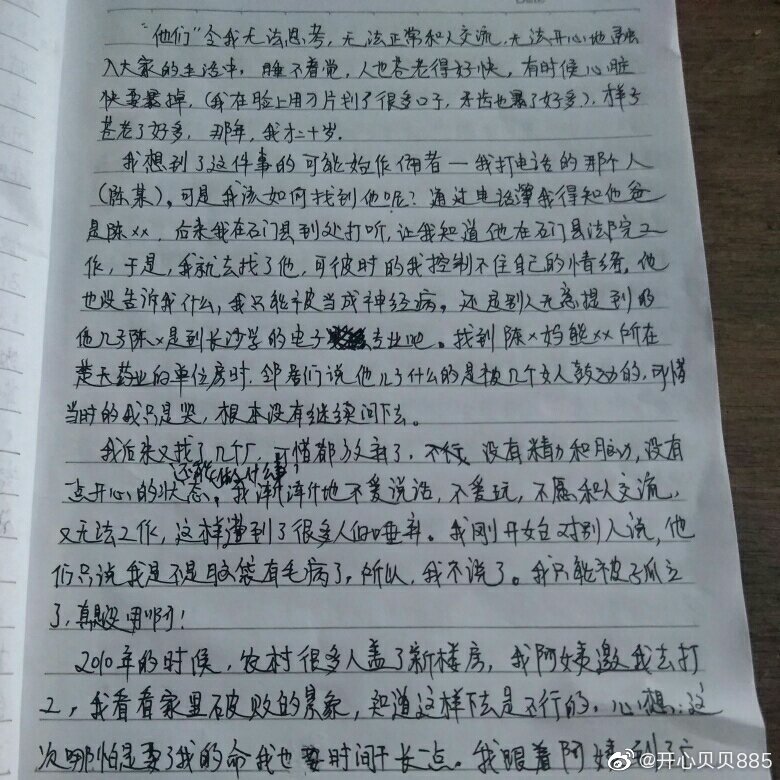 “他们”令我无法思考,无法正常和人交流,无法开心地融
入大家的生活中,睡不着觉,人也苍老得好快,有时候心脏
快要暴掉,(我在脸上用刀片划了很多口子,牙齿也暴了好多),样子
苍老了好多,那年,我才二十岁.
我想到了这件事的可能始作俑者一我打电话的那个人
(陈某)。可是我该如何找到他呢?通过电话簿我得知他爸
是陈××,后来我在石门县到处打听,让我知道他在石门县法院工
作,于是,我就去找了他,可彼时的我控制不住自己的情绪。他
也没告诉我什么,我只能被当成神经病。还是别人无意提到的
他儿子陈×是到长沙学的电子专业吧。找到陈×妈熊××所在
楚天药业的单位房时.邻居们说他儿子什么的是被几个女人鼓动的,可惜
当时的我只是哭,根本没有继续问下去。
我后来又找了几个厂,可惜都放弃了,不行,没有精力和脑力,没有
还能做什么事?
一点开心的状态。我渐渐地不爱说话,不爱玩,不愿和人交流,
又无法工作,这样遭到了很多人的唾弃。我刚开始对别人说,他
们只说我是不是脑袋有毛病了,所以,我不说了。我只能被孤立
了,真是没用啊!
2010年的时候,农村很多人盖了新楼房,我阿姨邀我去打
工,我看看家里破败的景象,知道这样下去是不行的,心想:这
次哪怕是要了我的命我也要时间干长一点。我跟着阿姨到了
@开心贝贝885